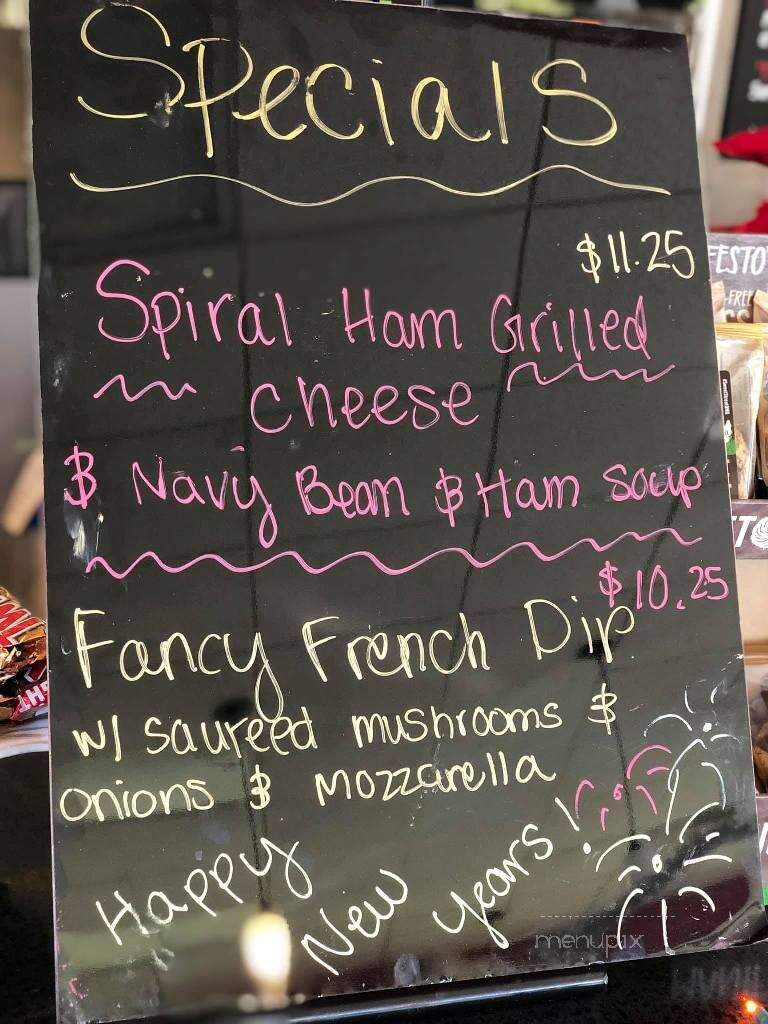 Specials
$11.25
Spiral Ham Grilled
Cheese
& Navy Bean & Ham Soup
$10.25
Fancy French Dip
w/ sauteed mushrooms &
onions & Mozzarella
Happy
New years!
menupix
ESTO
FREE